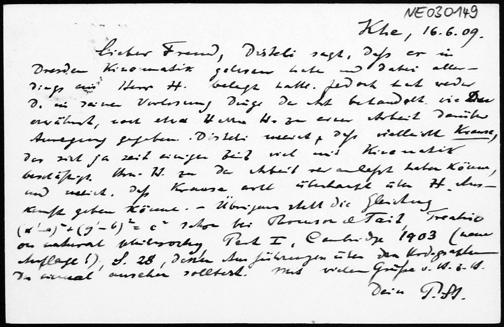 NE030149
Khe, 16.6.09.
Lieber Freund, Disteli sagt, dass er in
Dresden Kinematik gelesen habe und dabei aller-
dings ein Herr H. belegt hatte. Jedoch hat weder
D. in seiner Vorlesung Dinge der Art behandelt, wie Du
erwähnst, noch etwa Herrn H. zu einer Arbeit darüber
Anregung gegeben. Disteli meint, dass vielleicht Krause,
der sich ja seit einiger Zeit viel mit Kinematik
beschäftigt, Hrn. H. zu der Arbeit veranlasst haben könne,
und meint, dass Krause wohl überhaupt über H. Aus-
kunft geben könne. – Übrigens steht die Gleichung
(x'-x)²+(y'-y)²=c² schon bei Thomson & Tait, Treatise
on natural philosophy, Part I, Cambridge 1903 (neue
Auflage!), S. 28, dessen Ausführungen über den Hodographen
Du einmal ansehen solltest. Mit vielen Grüßen v. H. z. H.
Dein P. St.